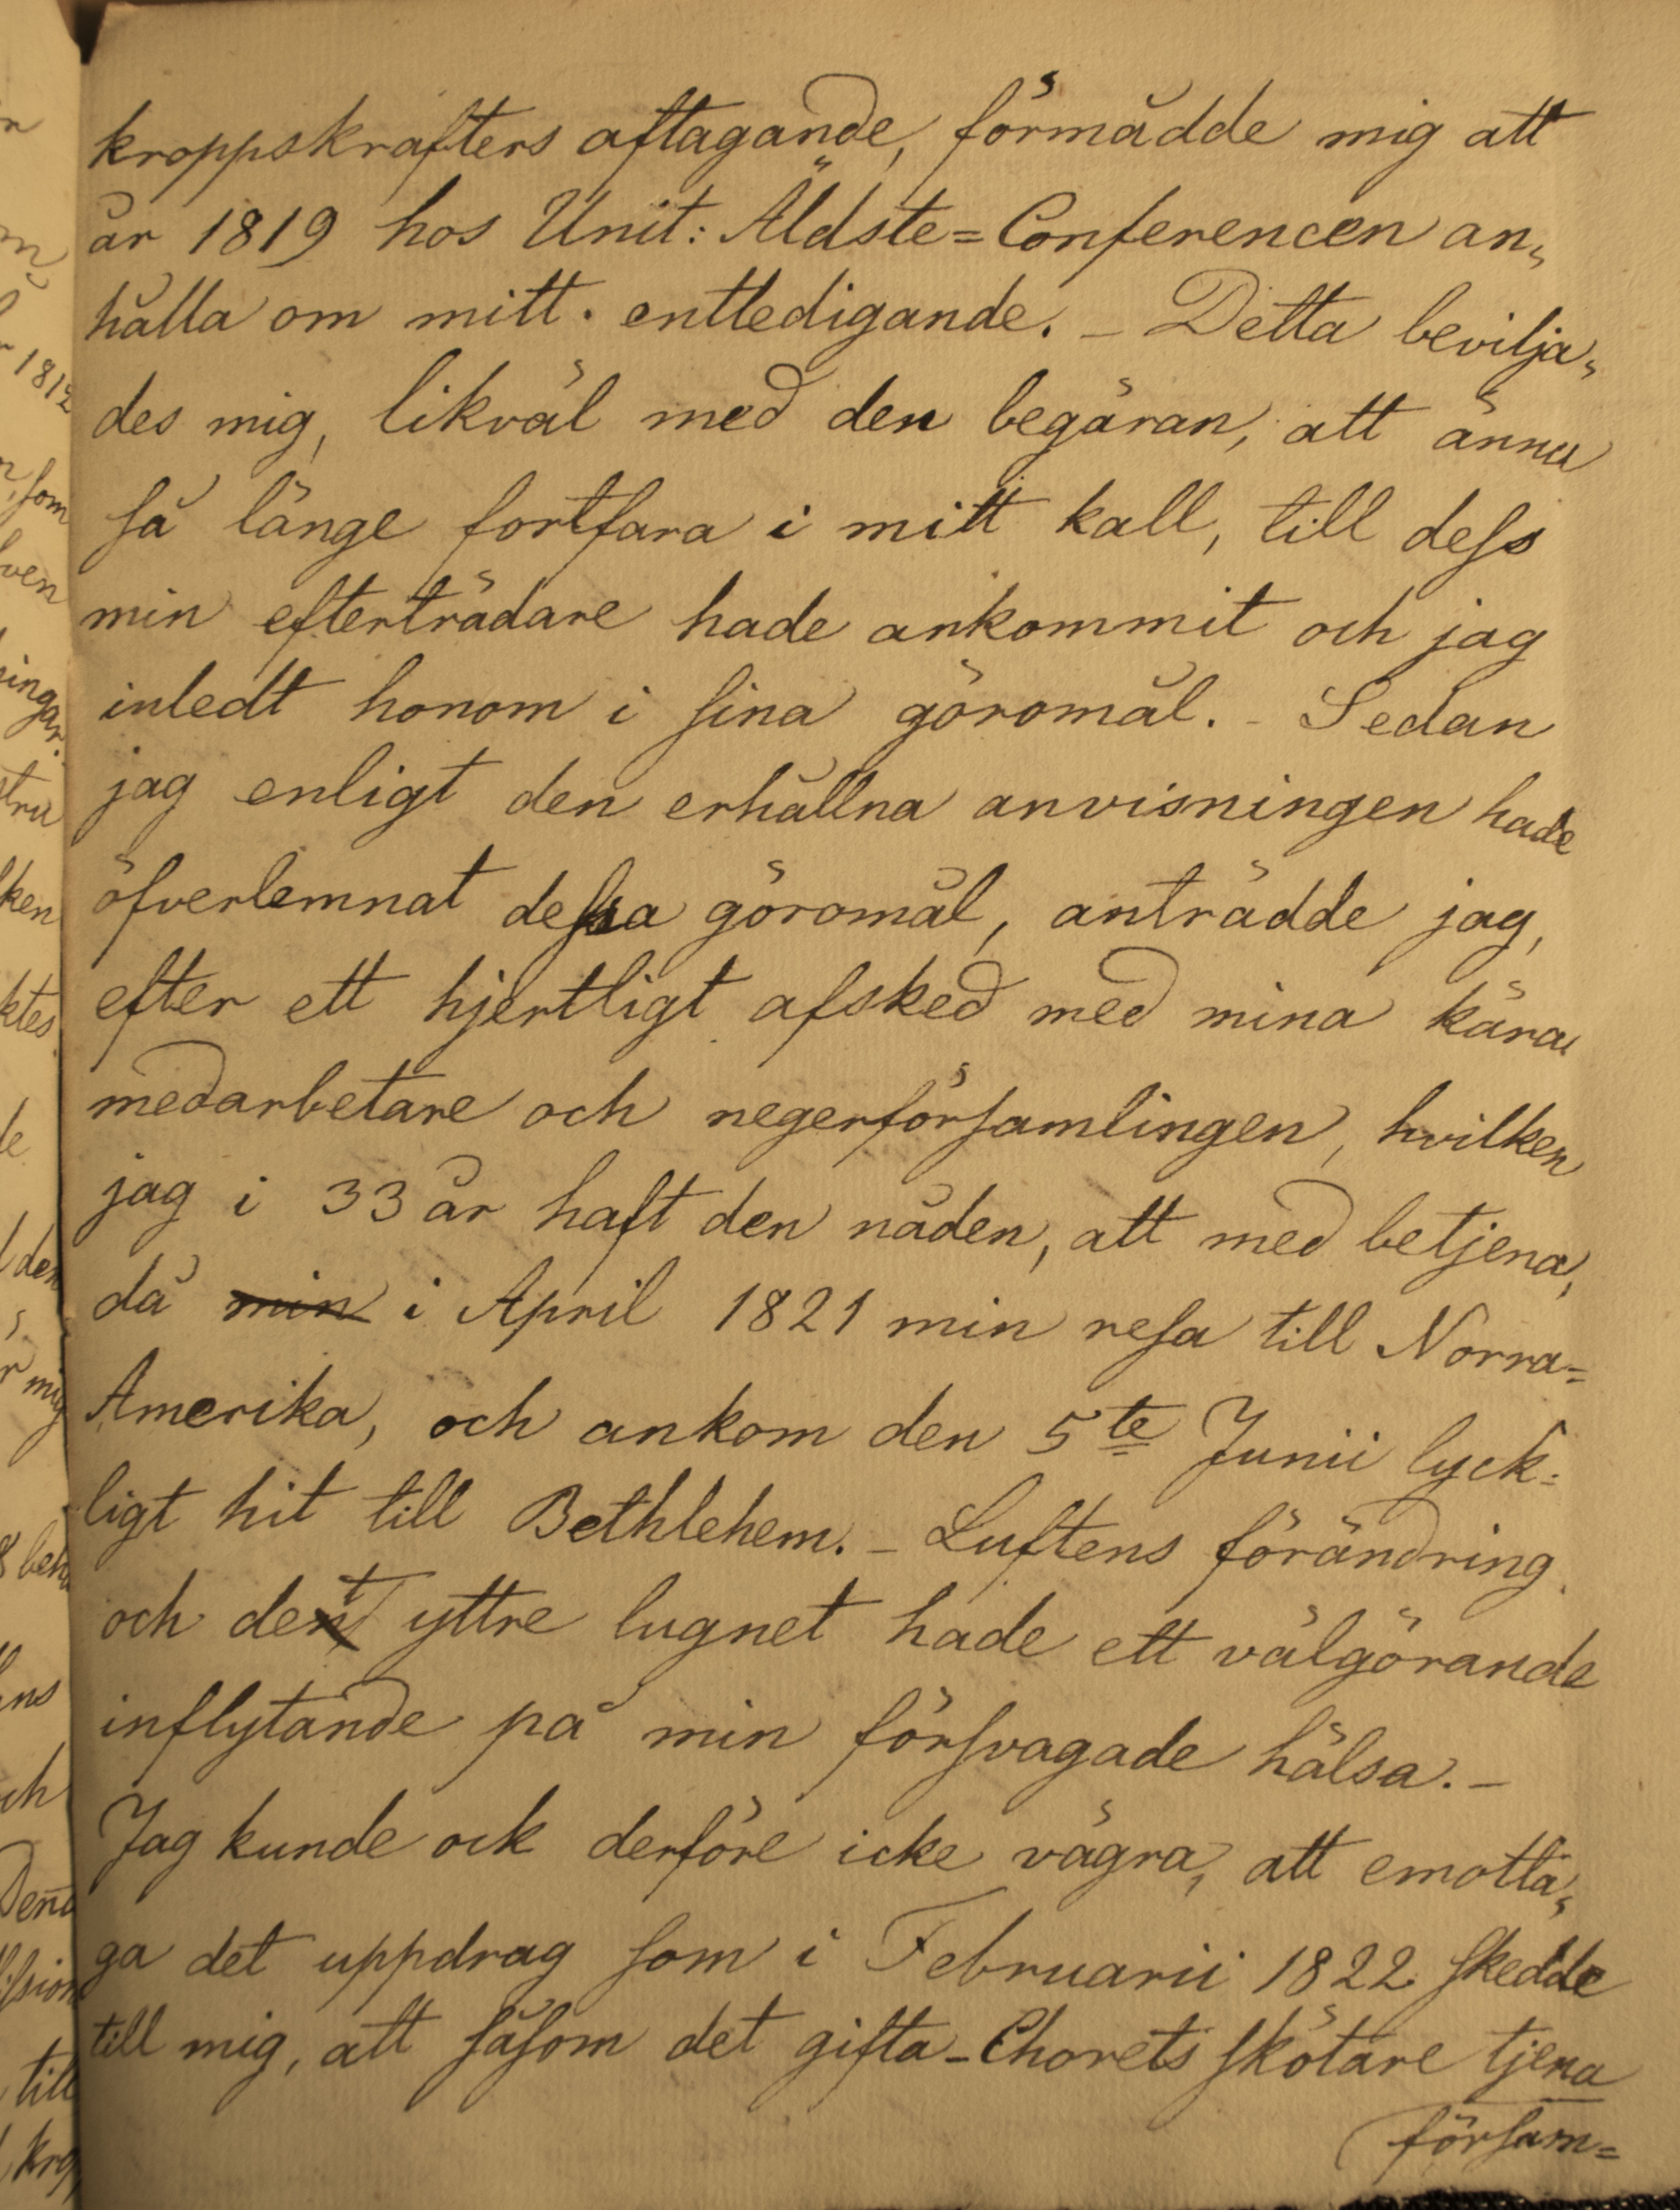 kroppskrafters aftagande, förmådde mig att
år 1819 hos Unit: Äldste=Conferencen an„
hålla om mitt. entledigande. – Detta bevilja„
des mig, likväl med den begäran, att ännu
så länge fortfara i mitt kall, till dess
min efterträdare hade ankommit och jag
inledt honom i sina göromål. – Sedan
jag enligt den erhållna anvisningen hade
öfverlemnat dessa göromål, anträdde jag,
efter ett hjertligt afsked med mina kära
medarbetare och negerförsamlingen, hvilken
jag i 33 år haft den nåden, att med betjena,
då min i April 1821 min resa till Norra=
Amerika, och ankom den 5te Junii lyck=
ligt hit till Bethlehem. – Luftens förändring
och det yttre lugnet hade ett välgörande
inflytande på min försvagade hälsa. –
Jag kunde ock derföre icke vägra, att emotta„
ga det uppdrag som i Februarii 1822 skedde
till mig, att såsom det gifta–Chorets skötare tjena
församk=